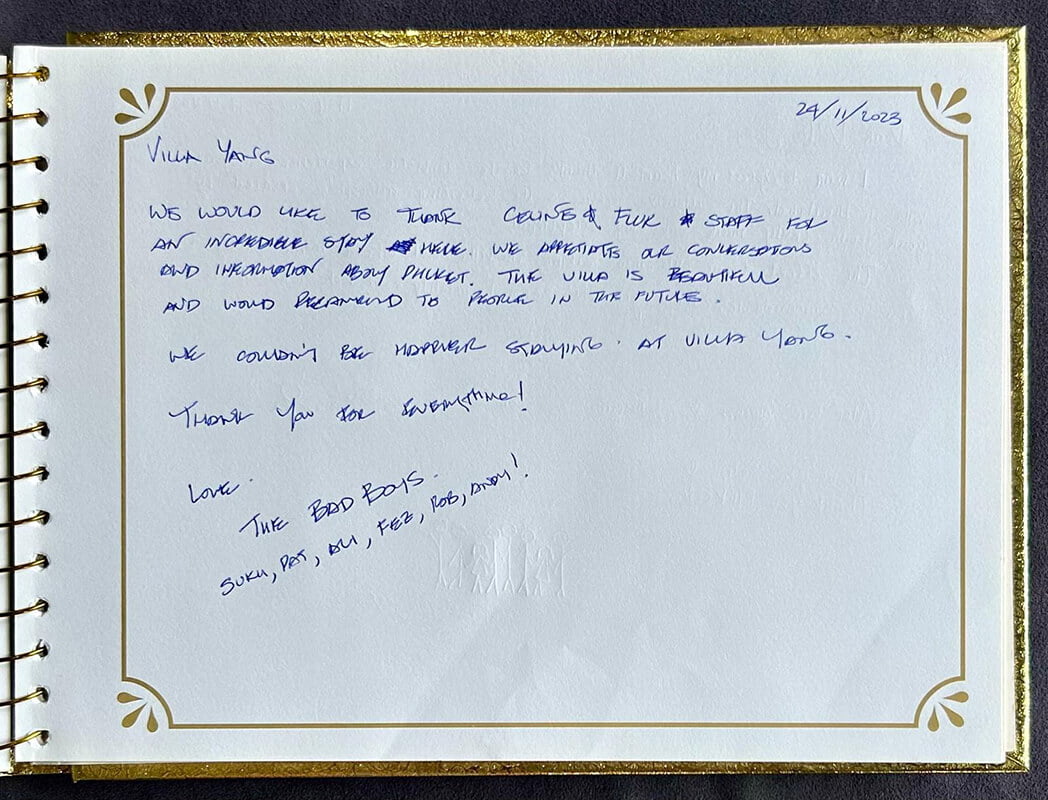 24/11/2023
VILLA YANG
WE WOULD LIKE TO THANK CELINE & FLUK & STAFF FOR
AN INCREDIBLE STAY HERE. WE APPRETIATE OUR CONVERSATIONS
AND INFORMATION ABOUT PHUKET. THE VILLA IS BEAUTIFUL
AND WOULD RECAMEND TO PEOPLE IN THE FUTURE.
WE COULDN'T BE HAPPIER STAYING. AT VILLA YANG.
THANK YOU FOR EVERYTHING!
LOVE.
THE BAD BOYS.
SUKU, PAT, ALI, FEZ, ROB, ANDY!